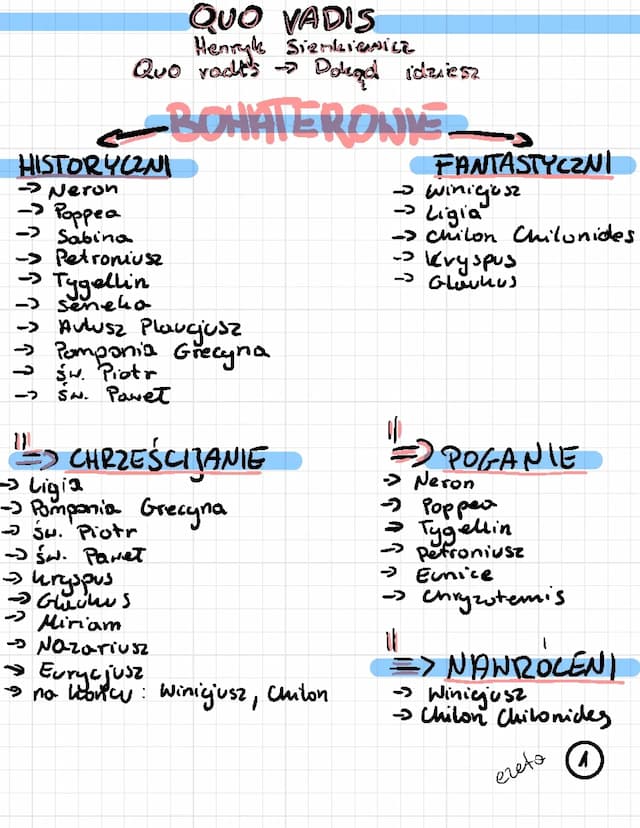 QUO VADIS
Henryk Sienkiewicz
Quo vadis → Dokąd idziesz
BOHATEROWIE
HISTORYCZNI
→ Neron
→ Poppea
→ Sabina
→ Petroniusz
→ Tygellin
→ Seneka
→ Aulusz Plaucjusz
→ Pomponia Grecyna
→ św. Piotr
→ św. Paweł
FANTASTYCZNI
→ Winicjusz
→ Ligia
→ Chilon Chilonides
→ Kryspus
→ Glaukus
⇒ CHRZEŚCIJANIE
→ Ligia
→ Pomponia Grecyna
→ św. Piotr
→ św. Paweł
→ Kryspus
→ Glaukus
→ Miriam
→ Nazariusz
→ Eurycjusz
→ na końcu: Winicjusz, Chilon
⇒ POGANIE
→ Neron
→ Poppea
→ Tygellin
→ Petroniusz
→ Eunice
→ Chryzotemis
⇒ NAWRÓCENI
→ Winicjusz
→ Chilon Chilonides
1